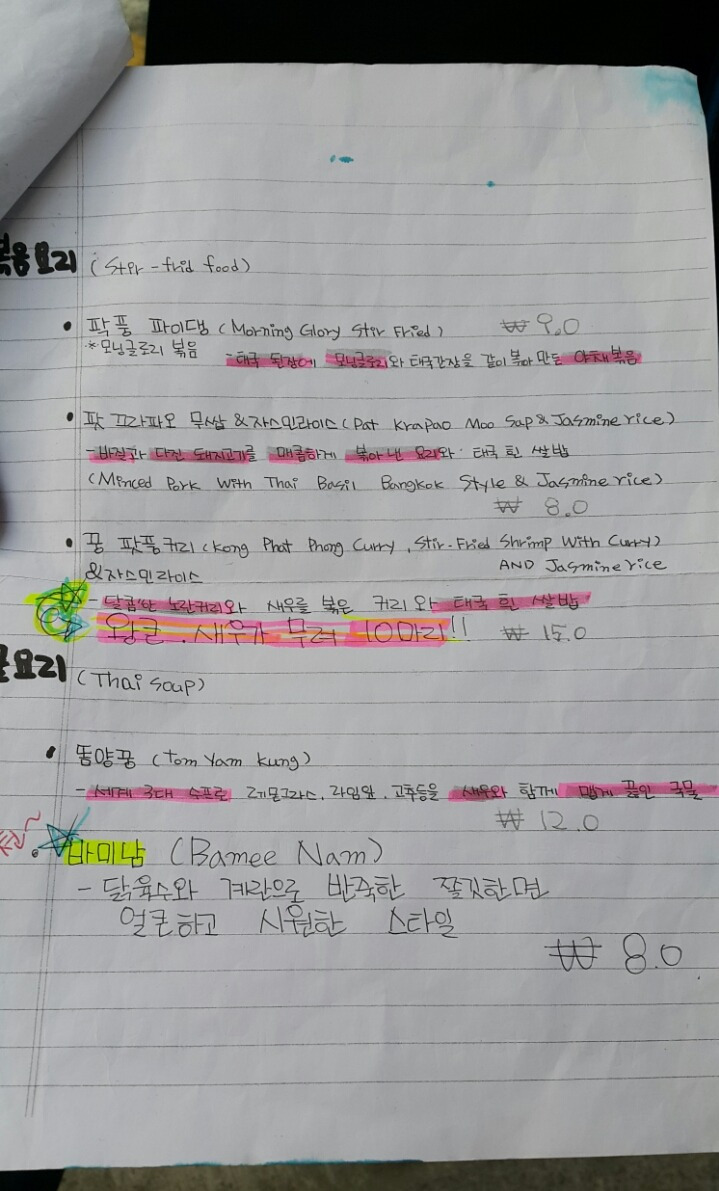 볶음요리 (Stir-frid food)
• 팍풍 파이댕 (Morning Glory Stir Fried) ₩ 9.0
*모닝글로리 볶음 -태국 된장에 모닝글로리와 태국간장을 같이 볶아 만든 야채볶음
• 팟 끄라파오 무쌉 & 자스민라이스 (Pat Krapao Moo Sap & Jasmine rice)
- 바질과 다진 돼지고기를 매콤하게 볶아 낸 요리와 태국 흰 쌀밥
(Minced Pork With Thai Basil Bangkok Style & Jasmine rice)
₩ 8.0
• 꿍 팟퐁커리 (Kong Phat Phong Curry, Stir-Fried Shrimp With Curry)
&자스민라이스 AND Jasmine rice
- 달콤한 노란커리와 새우를 볶은 커리와 태국 흰 쌀밥
왕큰 새우가 무려 10마리!! ₩ 15.0
요리 (Thai Soup)
• 똠양꿍 (Tom Yam Kung)
- 세계 3대 수프로 레몬그라스, 라임잎, 고추등을 새우와 함께 맵게 끓인 국물
₩ 12.0
바미남 (Bamee Nam)
- 닭육수와 계란으로 반죽한 쫄깃한면
얼큰하고 시원한 스타일
₩ 8.0